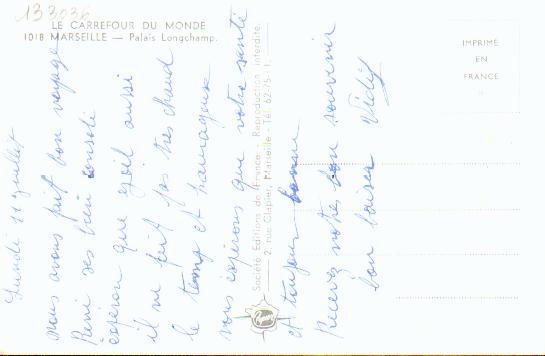 133036
LE CARREFOUR DU MONDE
1018 MARSEILLE — Palais Longchamp.
IMPRIMÉ
EN
FRANCE
Société Editions de France - Reproduction interdite.
2, rue Clapier, Marseille - Tél. 62-75-1
Lundi 11 Juillet
nous avons fait bon voyage
René ses bien consolé
esperon que soit aussi
il ne fait pas tres chaud
le temp et
vous esperons que votre santé
et toujour bonne
Recevez notre bon souvenir
bon baiser